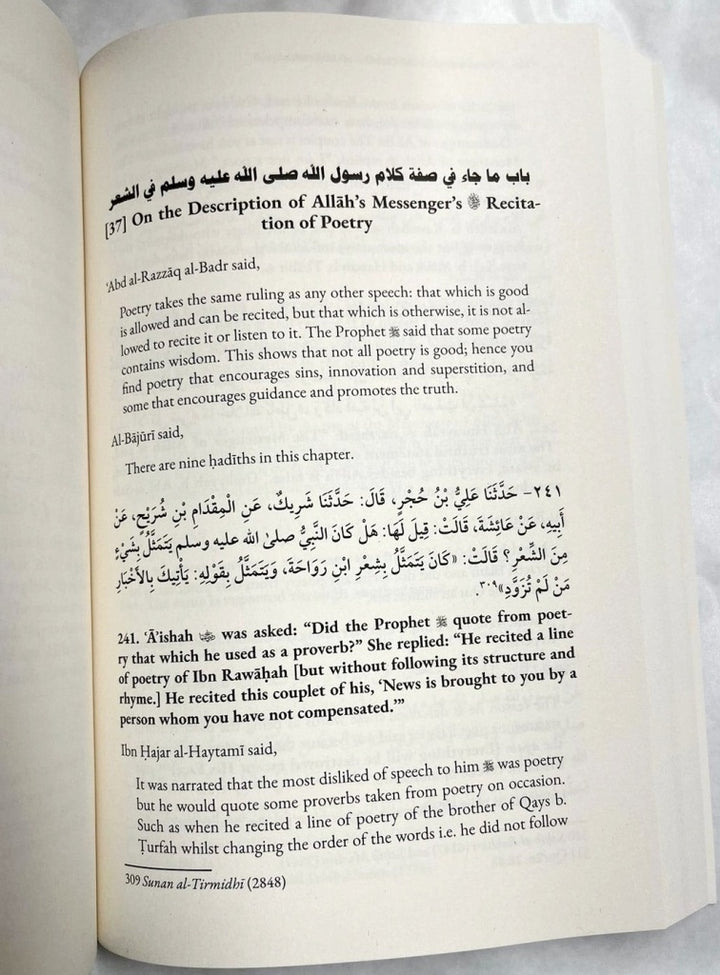 باب ما جاء في صفة كلام رسول الله صلى الله عليه وسلم في الشعر
[37] On the Description of Allāh’s Messenger’s ﷺ Recita-
tion of Poetry
ʿAbd al-Razzāq al-Badr said,
Poetry takes the same ruling as any other speech: that which is good
is allowed and can be recited, but that which is otherwise, it is not al-
lowed to recite it or listen to it. The Prophet ﷺ said that some poetry
contains wisdom. This shows that not all poetry is good; hence you
find poetry that encourages sins, innovation and superstition, and
some that encourages guidance and promotes the truth.
Al-Bājūrī said,
There are nine ḥadīths in this chapter.
٢٤١- حَدَّثَنَا عَلِيُّ بْنُ حُجْرٍ، قَالَ: حَدَّثَنَا شَرِيكٌ، عَنِ الْمِقْدَامِ بْنِ شُرَيْحٍ، عَنْ
أَبِيهِ، عَنْ عَائِشَةَ، قَالَتْ: قِيلَ لَهَا: هَلْ كَانَ النَّبِيُّ صلى الله عليه وسلم يَتَمَثَّلُ بِشَيْءٍ
مِنَ الشِّعْرِ؟ قَالَتْ: «كَانَ يَتَمَثَّلُ بِشِعْرِ ابْنِ رَوَاحَةَ، وَيَتَمَثَّلُ بِقَوْلِهِ: يَأْتِيكَ بِالأَخْبَارِ
مَنْ لَمْ تُزَوَّدِ»٣٠٩.
241. ʿĀ’ishah was asked: “Did the Prophet ﷺ quote from poet-
ry that which he used as a proverb?” She replied: “He recited a line
of poetry of Ibn Rawāḥah [but without following its structure and
rhyme.] He recited this couplet of his, ‘News is brought to you by a
person whom you have not compensated.’”
Ibn Ḥajar al-Haytamī said,
It was narrated that the most disliked of speech to him ﷺ was poetry
but he would quote some proverbs taken from poetry on occasion.
Such as when he recited a line of poetry of the brother of Qays b.
Ṭurfah whilst changing the order of the words i.e. he did not follow
309 Sunan al-Tirmidhī (2848)